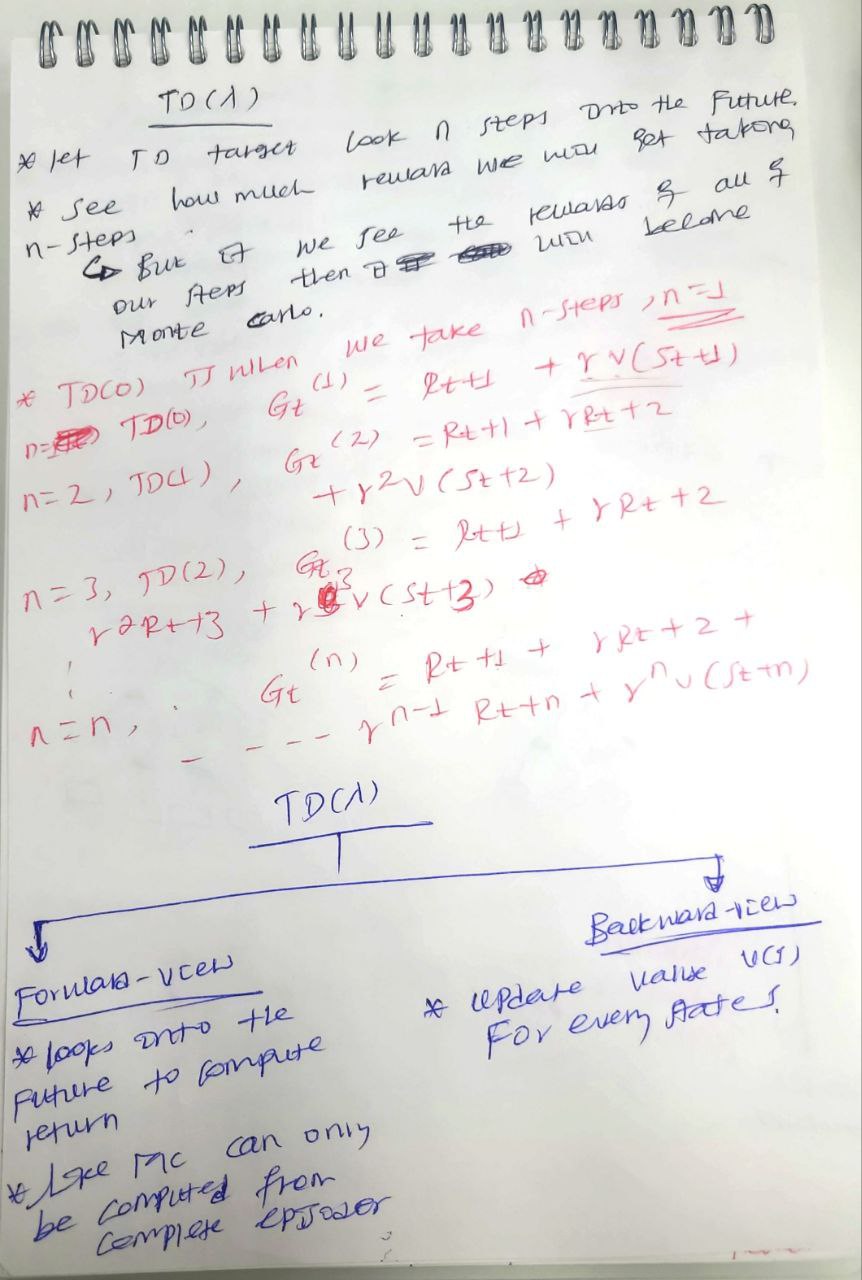 TD(λ)
* let TD target look n steps into the Future.
* See how much reward we will get taking
n-steps
↳ But if we see the rewards of all of
our steps then it will become
Monte carlo.
* TD(0) is when we take n-steps, n=1
n=1 TD(0), Gt(1) = Rt+1 + γV(St+1)
n=2, TD(1), Gt(2) = Rt+1 + γRt+2
+ γ²V(St+2)
n=3, TD(2), Gt(3) = Rt+1 + γRt+2
γ²Rt+3 + γ³V(St+3)
n=n, Gt(n) = Rt+1 + γRt+2 +
- - - - γⁿ⁻¹ Rt+n + γⁿV(St+n)
TD(λ)
Forward-view
* looks into the
Future to compute
return
* Like MC can only
be computed from
complete episodes
Backward-view
* update value V(s)
For every states.